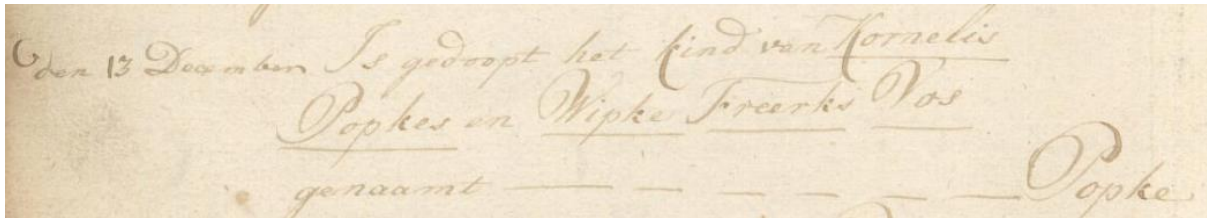 den 13 December Is gedoopt het kind van Kornelis
Popkes en Wipke Freerks Vos
genaamt — — — — — — Popke